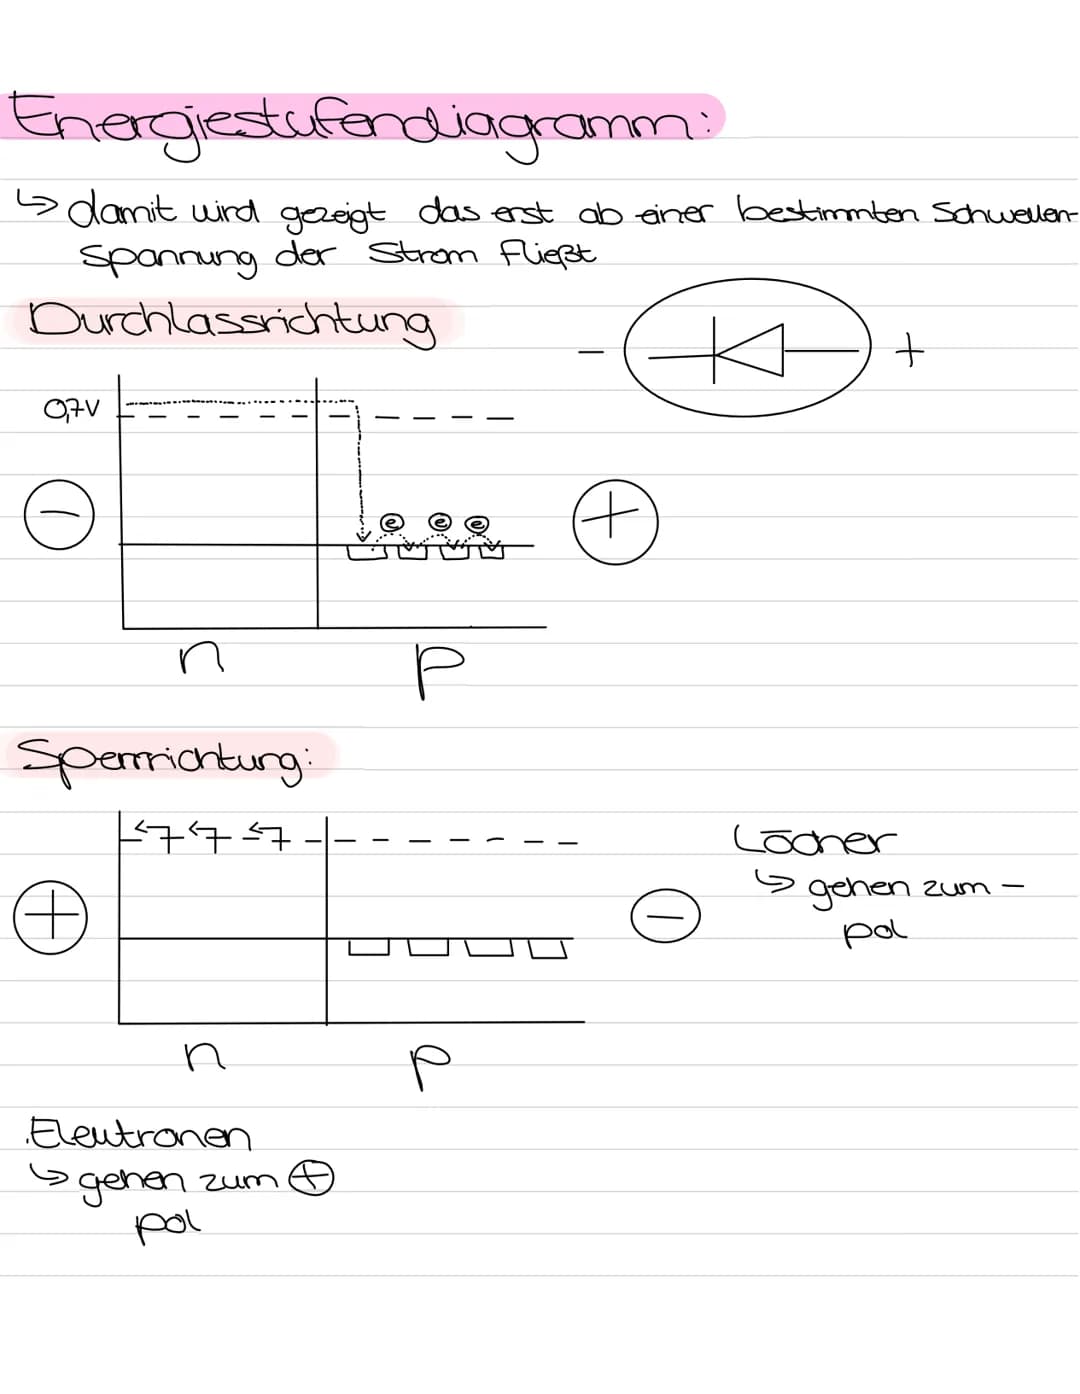 Energiestufendiagramm:
↳ damit wird gezeigt das erst ab einer bestimmten Schwellen-
spannung der Strom fließt
Durchlassrichtung
- +
0,7V
- +
e e e
n p
Sperrrichtung:
+ -
Löcher
↳ gehen zum -
pol
n p
Elektronen
↳ gehen zum +
pol